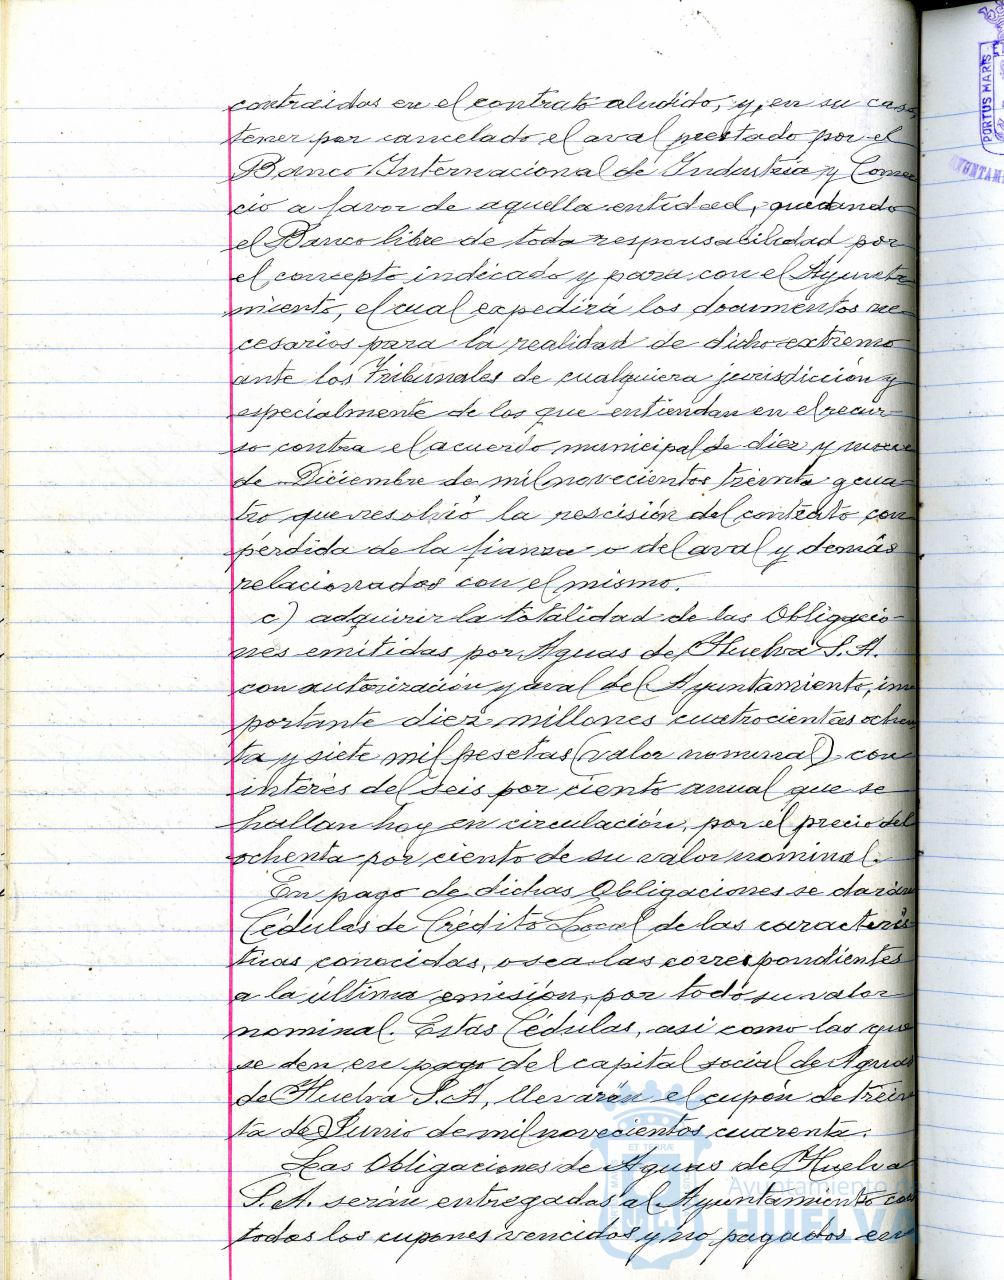 contraidas en el contrato aludido, y, en su caso,
tener por cancelado el aval prestado por el
Banco Internacional de Industria y Comer
cio a favor de aquella entidad, quedando
el Banco libre de toda responsabilidad por
el concepto indicado y para con el Ayunta
miento, el cual expedirá los documentos ne-
cesarios para la realidad de dicho extremo
ante los Tribunales de cualquiera jurisdicción y
especialmente de los que entiendan en el recur-
so contra el acuerdo municipal de diez y nueve
de Diciembre de mil novecientos treinta y cua-
tro que resolvió la rescisión del contrato con
pérdida de la fianza o del aval y demás
relacionados con el mismo.
c) adquirir la totalidad de las Obligacio-
nes emitidas por Aguas de Huelva S.A.
con autorización y aval del Ayuntamiento, im
portante diez millones cuatrocientas ochen
ta y siete mil pesetas (valor nominal) con
interés del seis por ciento anual que se
hallan hoy en circulación, por el precio del
ochenta por ciento de su valor nominal.
En pago de dichas Obligaciones se darán
Cédulas de Crédito Local de las caracterís
ticas conocidas, o sea las correspondientes
a la última emisión, por todo su valor
nominal. Estas Cédulas, asi como las que
se den en pago del capital social de Aguas
de Huelva S.A, llevarán el cupón de trein
ta de Junio de mil novecientos cuarenta.
Las Obligaciones de Aguas de Huelva
S.A. serán entregadas al Ayuntamiento con
todos los cupones vencidos y no pagados en
PORTUS MARIS
AYUNTAM
ET TERRAE
Ayuntamiento de
HUELVA